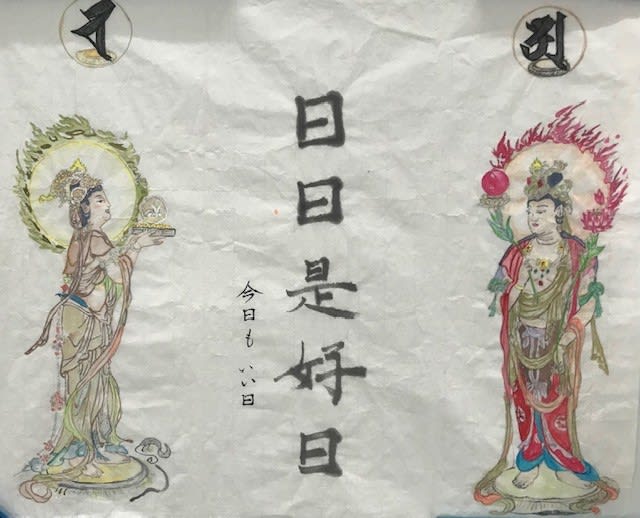 日日是好日
今日も いい日